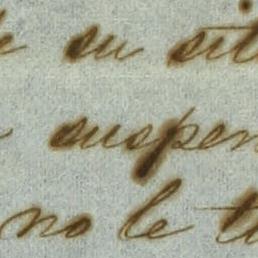 su sit
suspen
no le t